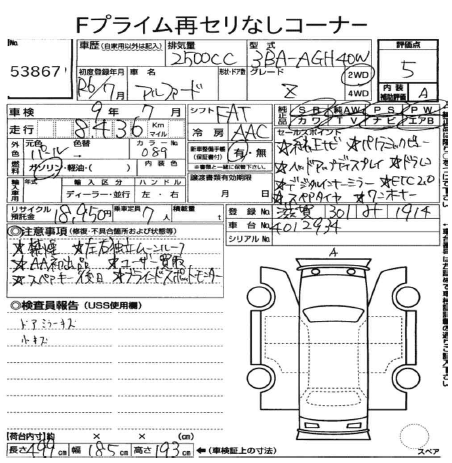 Fプライム再セリなしコーナー
No. 車歴(自家用以外は記入) 排気量 2500CC 型式 3BA-AGH40W 評価点
53867
初度登録年月 R6/7月 車名 アルファード 形状・ドア数 グレード Z 2WD 4WD 5
内装補助評価 A
車検 9年7月 シフト FAT 純正品 SR 純AW PS PW
走行 8436 Km マイル 冷房 AAC カワ TV ナビ エアB
外色 元色 パール 色替 カラーNo. 089 新車整備手帳(保証書付) 有・無 セールスポイント
☆純正ナビ ☆パノラミックビュー
燃料 ガソリン・軽油・( ) 内装色
☆ヘッドアップディスプレイ ☆ドラレコ
輸入車用 年式 輸入区分 ハンドル 譲渡書類有効期限 ☆デジタルインナーミラー ☆ETC2.0
ディーラー・並行 左・右 月 日 ☆スペアタイヤ ☆ワンオーナー
リサイクル預託金 18,950円 乗車定員 7人 積載量 t 登録No. 滋賀 301 1914
車台No. 4012934
◎注意事項(修復・不具合箇所および状態等) シリアルNo.
☆禁煙 ☆左右独立ムーンルーフ
☆AA初出品 ☆ユーザー買取
☆スペアキー後日 ☆ブラインドスポットモニター
◎検査員報告(USS使用欄)
ドアミラーキズ
小キズ
A
【荷台内寸】約 × × (cm)
長さ 499cm 幅 185cm 高さ 193cm ←(車検証上の寸法) スペア